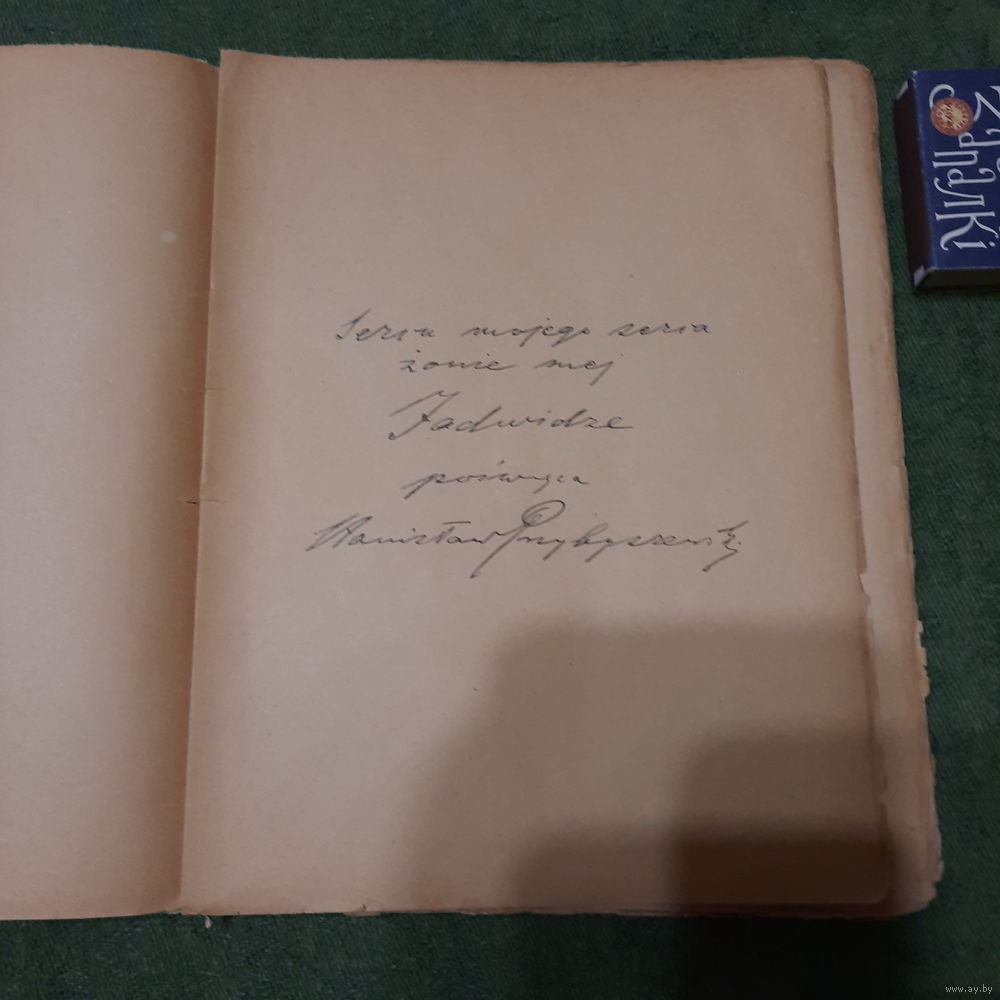 Sercu mojego serca
żonie mej
Jadwidze
poświęca
Stanisław Przybyszewski
Запалкі
www.ay.by